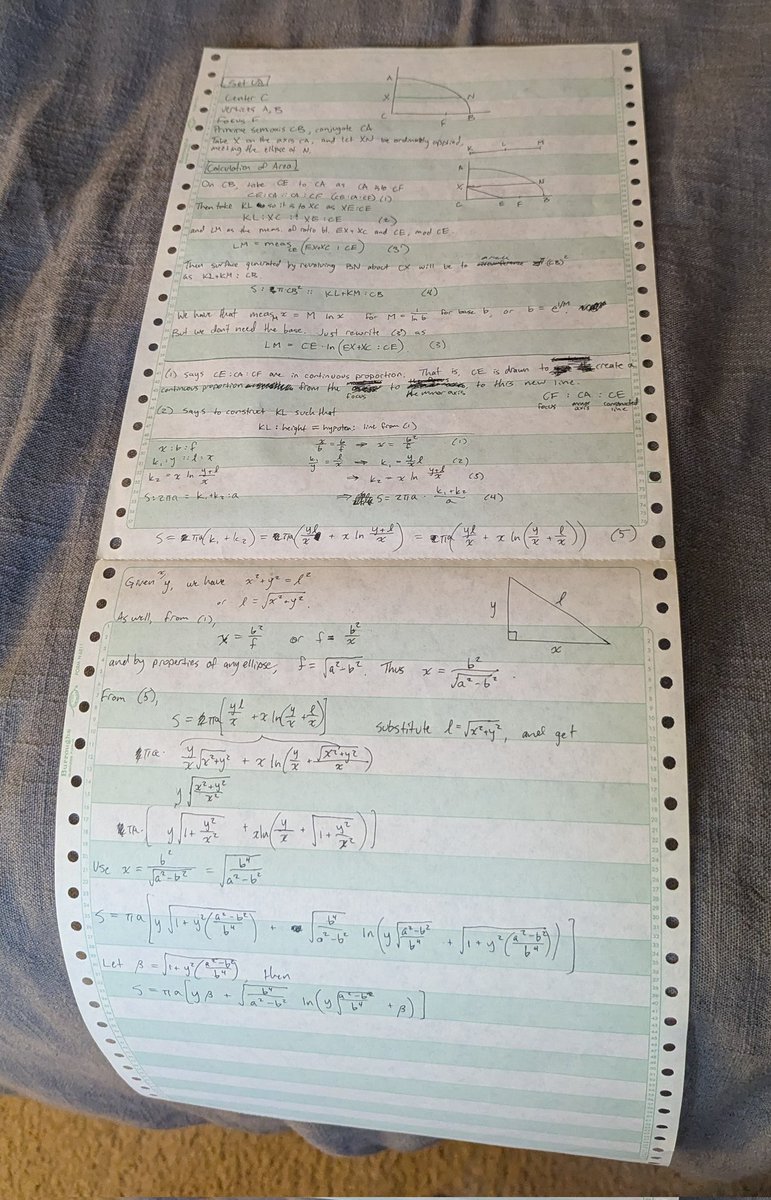 Set Up
Center C
vertices A, B
Focus F
Principle semiaxis CB, conjugate CA
Take X on the axis CA, and let XN be ordinately applied,
meeting the ellipse at N.
A
X
C
F
B
N
K L M
Calculation of Area
On CB, take CE to CA as CA is to CF
CE:CA :: CA:CF (1)
Then take KL so it is to XC as XE:CE
KL:XC :: XE:CE (2)
and LM as the meas. of ratio bt. EX+XC and CE, mod CE.
LM = meas CE (EX+XC : CE) (3')
A
X
C
E F B
N
Then surface generated by revolving BN about CX will be to π(CB)²
as KL+KM : CB
S : πCB² :: KL+KM : CB (4)
We have that meas x = M ln x for M = 1/ln b for base b, or b = e^(1/M).
But we don't need the base. Just rewrite (3') as
LM = CE · ln (EX+XC : CE) (3)
(1) says CE:CA:CF are in continuous proportion. That is, CE is drawn to create a
continuous proportion from the focus to the minor axis, to this new line.
CF : CA : CE
focus minor axis constructed line
(2) says to construct KL such that
KL : height = hypoten : line from (1)
x:b:f x/b = b/f ⇒ x = b²/f (1)
k₁:y :: l:x k₁/y = l/x ⇒ k₁ = y/x l (2)
k₂ = x ln (y+l)/x ⇒ k₂ = x ln (y+l)/x (3)
S:2πa = k₁+k₂:a ⇒ S = 2πa · (k₁+k₂)/a (4)
S = πa(k₁+k₂) = πa(yl/x + x ln (y+l)/x) = πa(yl/x + x ln(y/x + l/x)) (5)
Given x, y, we have x²+y² = l²
or l = √(x²+y²).
y
l
x
As well, from (1),
x = b²/f or f = b²/x
and by properties of any ellipse, f = √(a²-b²). Thus x = b²/√(a²-b²).
From (5),
S = πa[yl/x + x ln(y/x + l/x)] substitute l = √(x²+y²), and get
πa · y/x √(x²+y²) + x ln(y/x + √(x²+y²)/x)
y √((x²+y²)/x²)
πa · [y √(1 + y²/x²) + x ln(y/x + √(1 + y²/x²))]
Use x = b²/√(a²-b²) = √(b⁴/(a²-b²))
S = πa[y √(1 + y²((a²-b²)/b⁴)) + √(b⁴/(a²-b²)) ln(y √((a²-b²)/b⁴) + √(1 + y²((a²-b²)/b⁴)))]
Let β = √(1 + y²((a²-b²)/b⁴)), then
S = πa[yβ + √(b⁴/(a²-b²)) ln(y √((a²-b²)/b⁴) + β)]
Burroughs